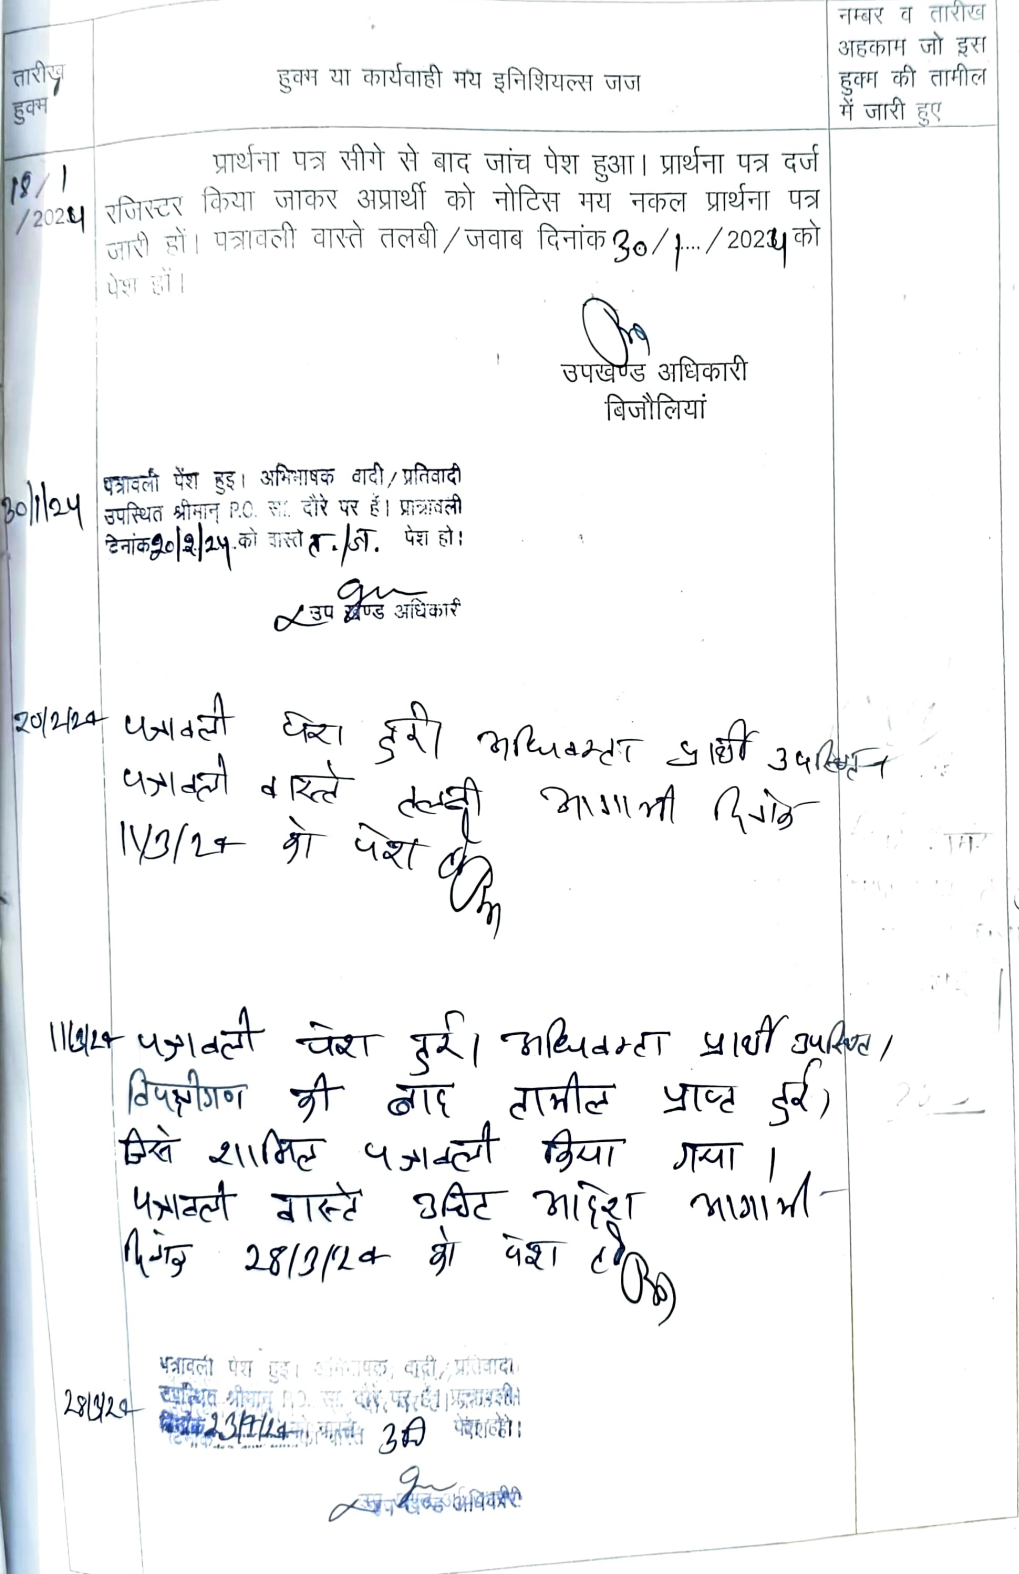 नम्बर व तारीख
अहकाम जो इस
हुक्म की तामील
में जारी हुए
तारीख
हुक्म
हुक्म या कार्यवाही मय इनिशियल्स जज
18/1
/2024
प्रार्थना पत्र सीगे से बाद जांच पेश हुआ। प्रार्थना पत्र दर्ज
रजिस्टर किया जाकर अप्रार्थी को नोटिस मय नकल प्रार्थना पत्र
जारी हों। पत्रावली वास्ते तलबी/जवाब दिनांक 30/1.../2024 को
पेश हों।
उपखण्ड अधिकारी
बिजौलियां
30/1/24
पत्रावली पेंश हुइ। अभिभाषक वादी/प्रतिवादी
उपस्थित श्रीमान् P.O. सा. दौरे पर हैं। पत्रावली
दिनांक 20/2/24 को वास्ते त./ज. पेश हो।
उप खण्ड अधिकारी
20/2/24 पत्रावली पेश हुई। अधिवक्ता प्रार्थी उपस्थित।
पत्रावली वास्ते तलबी आगामी दिनांक
11/3/24 को पेश हो
11/3/24 पत्रावली पेश हुई। अधिवक्ता प्रार्थी उपस्थित।
विपक्षीगण की बाद तामील प्राप्त हुई।
जिसे शामिल पत्रावली किया गया।
पत्रावली वास्ते उचित आदेश आगामी
दिनांक 28/3/24 को पेश हो
28/3/24
पत्रावली पेश हुइ। अभिभाषक वादी/प्रतिवादी
उपस्थित श्रीमान् P.O. सा. दौरे पर हैं। पत्रावली
दिनांक 23/7/24 को वास्ते उआ पेश होवे।
उप खण्ड अधिकारी